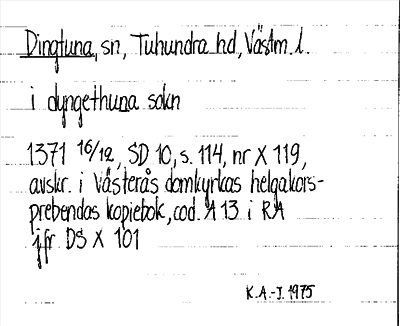 Dingtuna, sn, Tuhundra hd, Västm. l.
i dyngethuna sokn
1371 16/12, SD 10, s. 114, nr X 119,
avskr. i Västerås domkyrkas helgakors-
prebendas kopiebok, cod. A 13 i RA
jfr DS X 101
K.A.-J. 1975